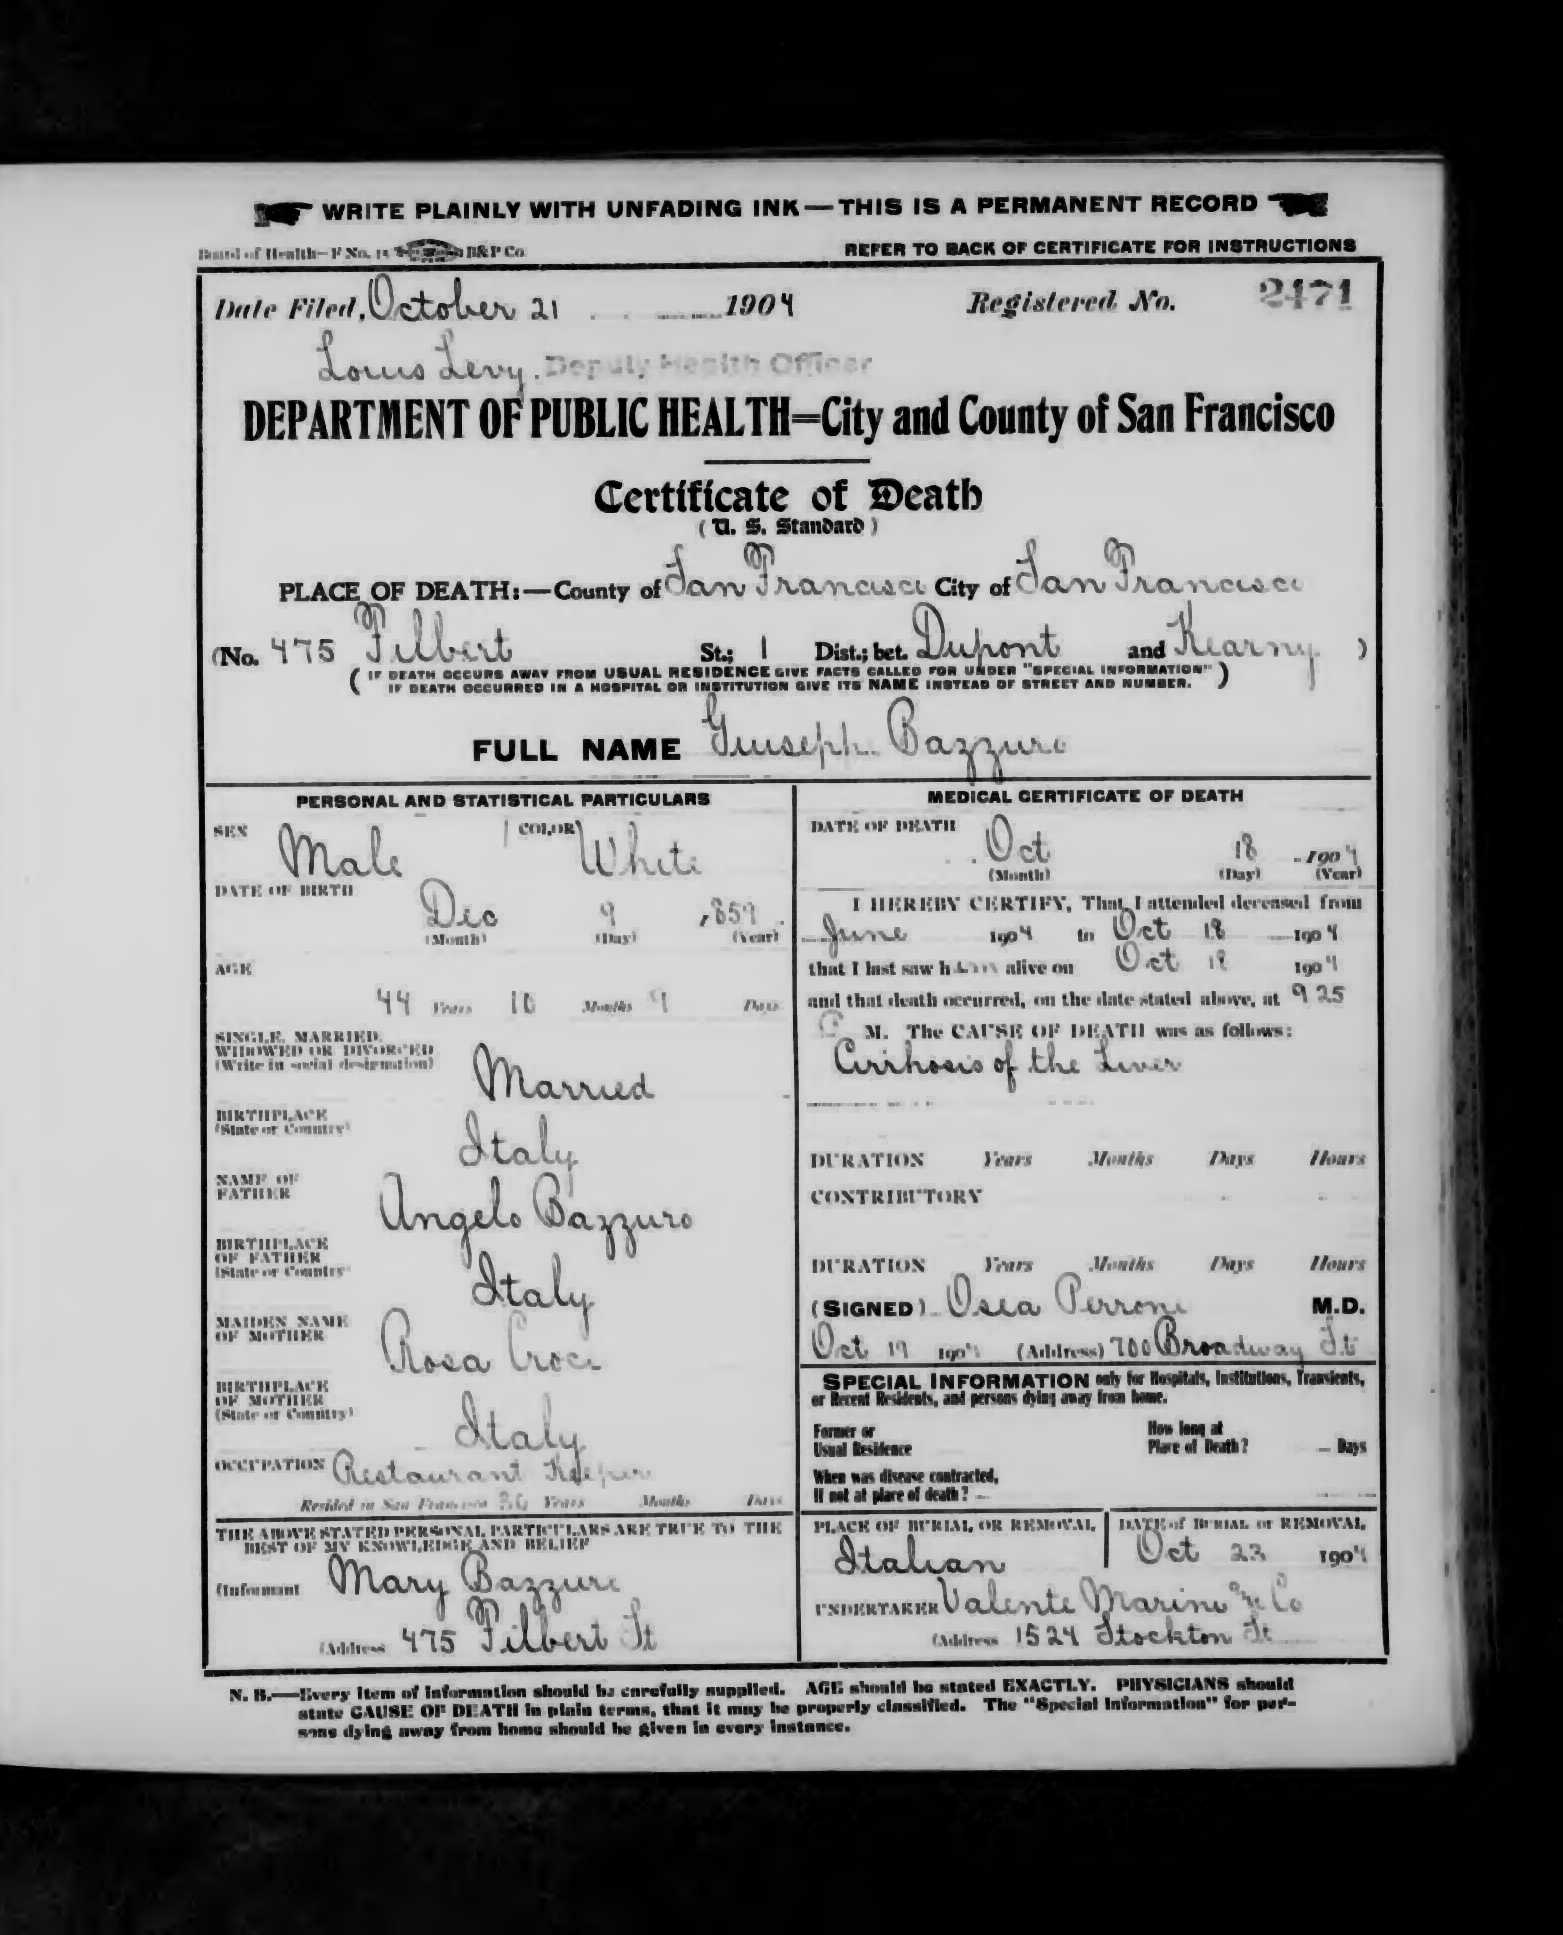 WRITE PLAINLY WITH UNFADING INK—THIS IS A PERMANENT RECORD
Board of Health—F No. 15 B&P Co
REFER TO BACK OF CERTIFICATE FOR INSTRUCTIONS
Date Filed, October 21 1904 Registered No. 2471
Louis Levy. Deputy Health Officer
DEPARTMENT OF PUBLIC HEALTH=City and County of San Francisco
Certificate of Death
(U. S. Standard)
PLACE OF DEATH:—County of San Francisco City of San Francisco
(No. 475 Filbert St.; 1 Dist.; bet. Dupont and Kearny )
( IF DEATH OCCURS AWAY FROM USUAL RESIDENCE GIVE FACTS CALLED FOR UNDER "SPECIAL INFORMATION" )
IF DEATH OCCURRED IN A HOSPITAL OR INSTITUTION GIVE ITS NAME INSTEAD OF STREET AND NUMBER.
FULL NAME Giuseph. Bazzuro
PERSONAL AND STATISTICAL PARTICULARS
SEX Male COLOR White
DATE OF BIRTH
Dec 9 ,859
(Month) (Day) (Year)
AGE
44 Years 10 Months 9 Days
SINGLE, MARRIED,
WIDOWED OR DIVORCED
(Write in social designation) Married
BIRTHPLACE
(State or Country) Italy
NAME OF
FATHER Angelo Bazzuro
BIRTHPLACE
OF FATHER
(State or Country) Italy
MAIDEN NAME
OF MOTHER Rosa Croce
BIRTHPLACE
OF MOTHER
(State or Country) Italy
OCCUPATION Restaurant Keeper
Resided in San Francisco Years Months Days
THE ABOVE STATED PERSONAL PARTICULARS ARE TRUE TO THE
BEST OF MY KNOWLEDGE AND BELIEF
(Informant Mary Bazzuro
(Address 475 Filbert St
MEDICAL CERTIFICATE OF DEATH
DATE OF DEATH
Oct 18 1904
(Month) (Day) (Year)
I HEREBY CERTIFY, That I attended deceased from
June 1904 to Oct 18 1904
that I last saw him alive on Oct 18 1904
and that death occurred, on the date stated above, at 9 25
P M. The CAUSE OF DEATH was as follows:
Cirrhosis of the Liver
DURATION Years Months Days Hours
CONTRIBUTORY
DURATION Years Months Days Hours
(SIGNED) Osea Perrone M.D.
Oct 19 1904 (Address) 700 Broadway St
SPECIAL INFORMATION only for Hospitals, Institutions, Transients,
or Recent Residents, and persons dying away from home.
Former or
Usual Residence
How long at
Place of Death? Days
When was disease contracted,
If not at place of death?
PLACE OF BURIAL OR REMOVAL
Italian
DATE of BURIAL or REMOVAL
Oct 23 1904
UNDERTAKER Valente Marini & Co
(Address 1524 Stockton St
N. B.—Every item of information should be carefully supplied. AGE should be stated EXACTLY. PHYSICIANS should
state CAUSE OF DEATH in plain terms, that it may be properly classified. The "Special Information" for per-
sons dying away from home should be given in every instance.